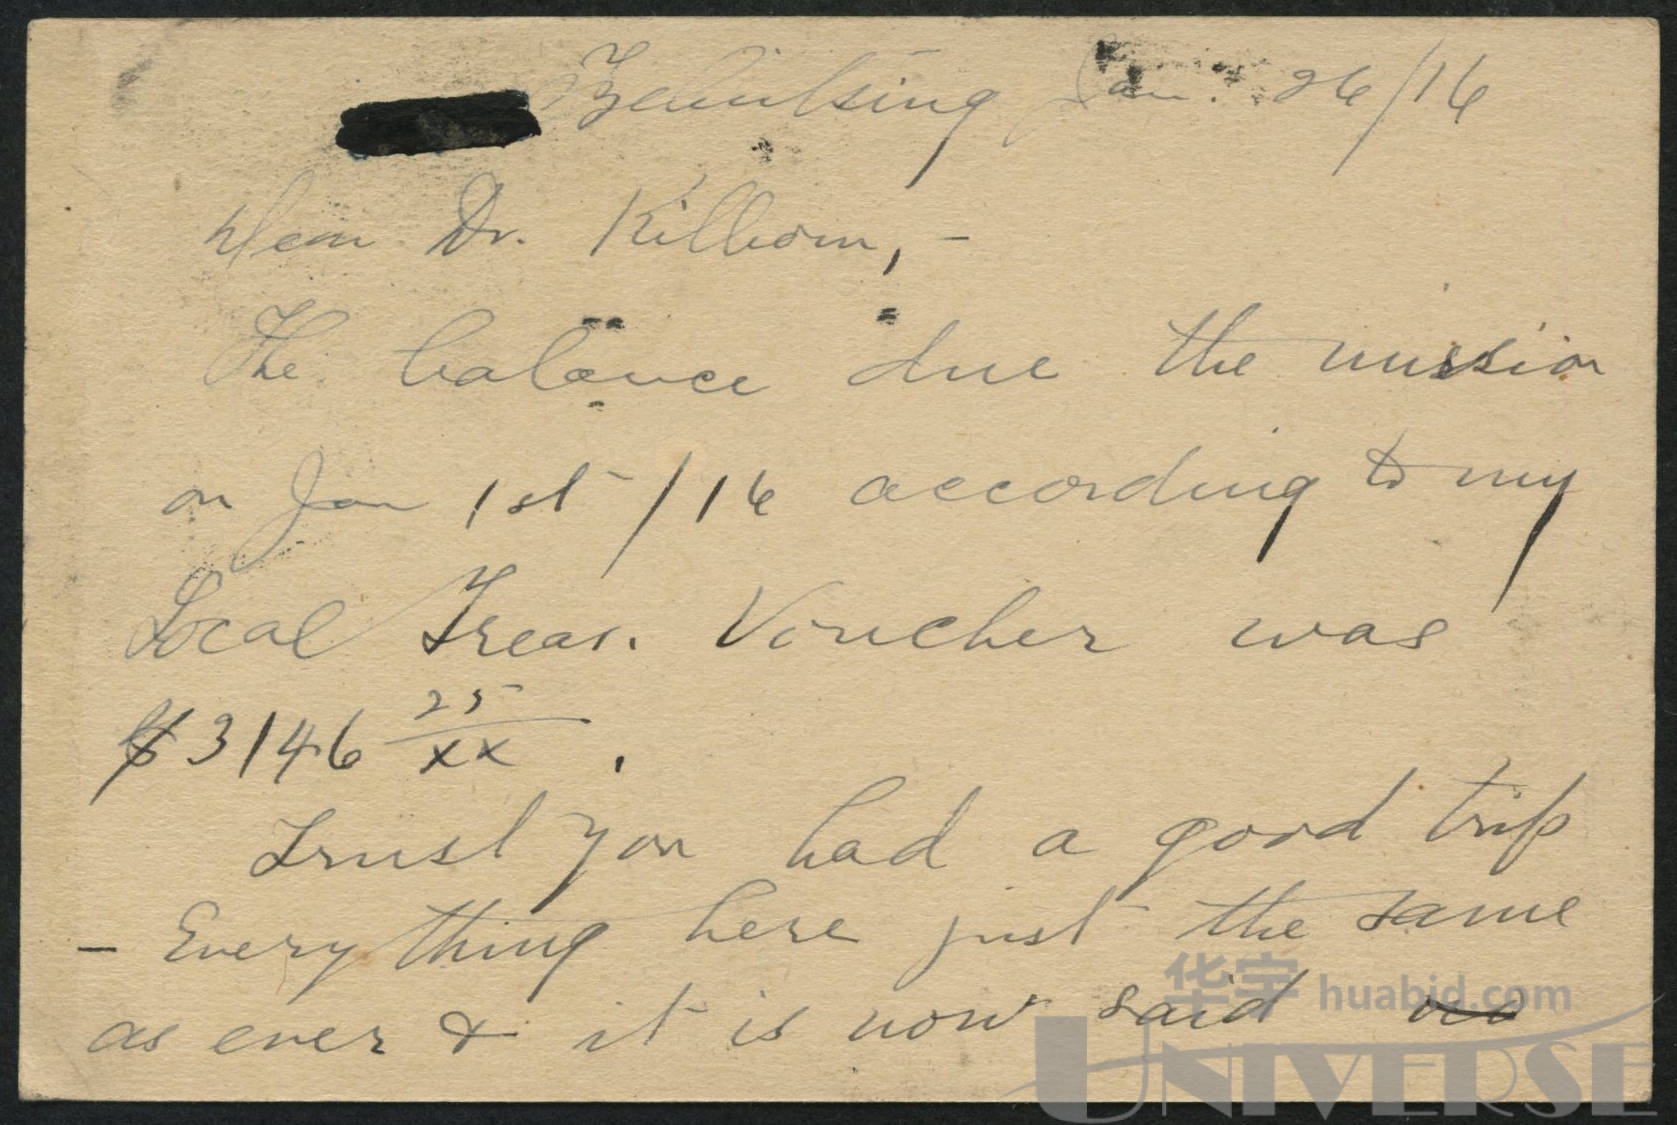 Tzeliutsing Jan. 26/16
Dear Dr. Kilborn, -
The balance due the mission
on Jan 1st /16 according to my
Local Treas. Voucher was
$3146 25/xx .
Trust you had a good trip
- Everything here just the same
as ever & it is now said no
华宇 huabid.com
UNIVERSE